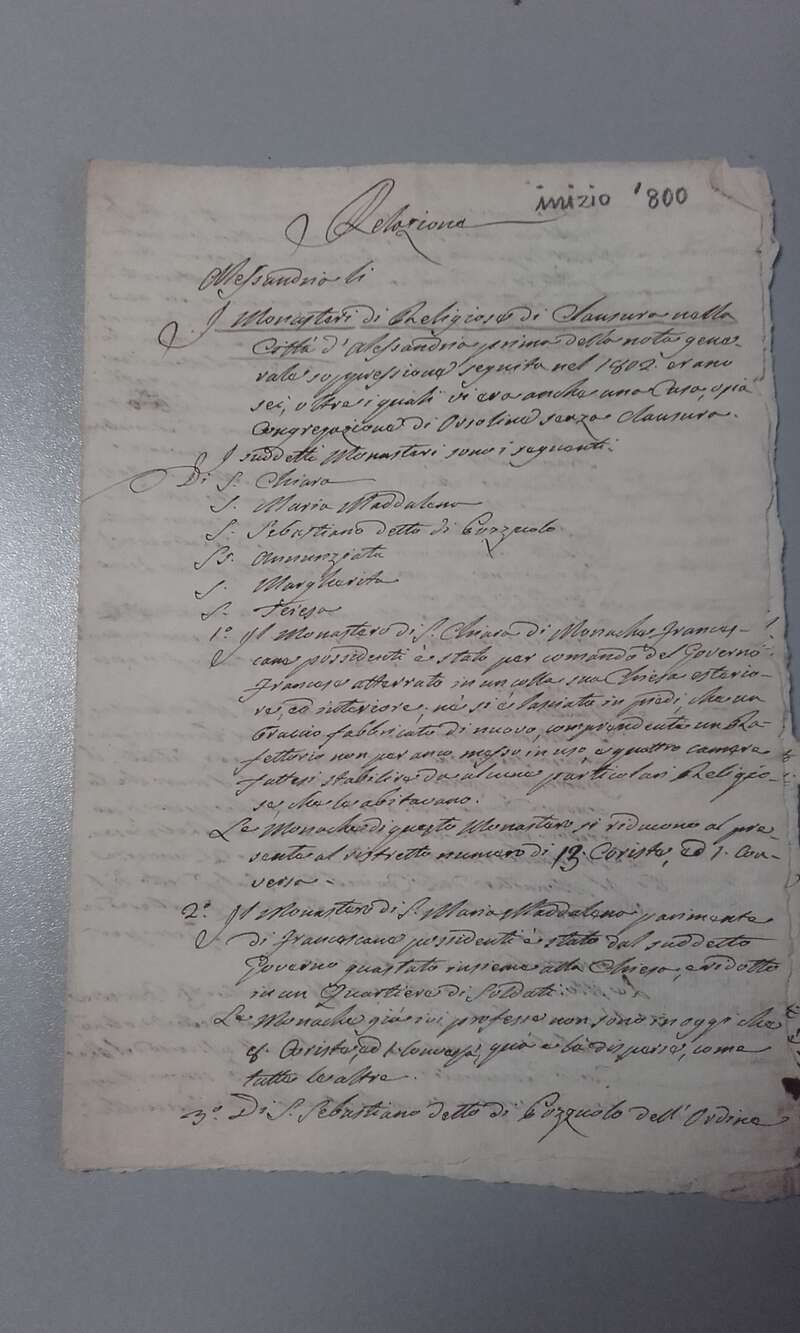 inizio '800
Relazione
Alessandria li
I Monasteri di Religiose di Clausura nella
Città d'Alessandria prima della nota gene
rale soppressione seguita nel 1802. erano
sei, oltre i quali vi era anche una Casa, o sia
Congregazione di Orsoline senza Clausura.
I suddetti Monasteri sono i seguenti.
Di S. Chiara
S. Maria Maddalena
S. Sebastiano detto di Pozzuolo
SS. Annunziata
S. Margherita
S. Teresa
1.º Il Monastero di S. Chiara di Monache Frances-
cane possidenti è stato per comando del Governo
Francese atterrato in un colla sua Chiesa esterio-
re, ed interiore; nè si è lasciato in piedi che un
braccio fabbricato di nuovo, comprendente un Re-
fettorio non per anco messo in uso, e quattro camere
fattesi stabilire da alcune particolari Religio-
se, che le abitavano.
Le Monache di questo Monastero si riducono al pre-
sente al ristretto numero di 13. Coriste, ed 1. Con-
versa.
2.º Il Monastero di S. Maria Maddalena parimente
di Francescane possidenti è stato dal suddetto
Governo guastato insieme alla Chiesa, e ridotto
in un Quartiere di Soldati.
Le Monache già ivi professe non sono in oggi che
8. Coriste, ed 1. Conversa, quà e là disperse, come
tutte le altre.
3.º Di S. Sebastiano detto di Pozzuolo dell'Ordine